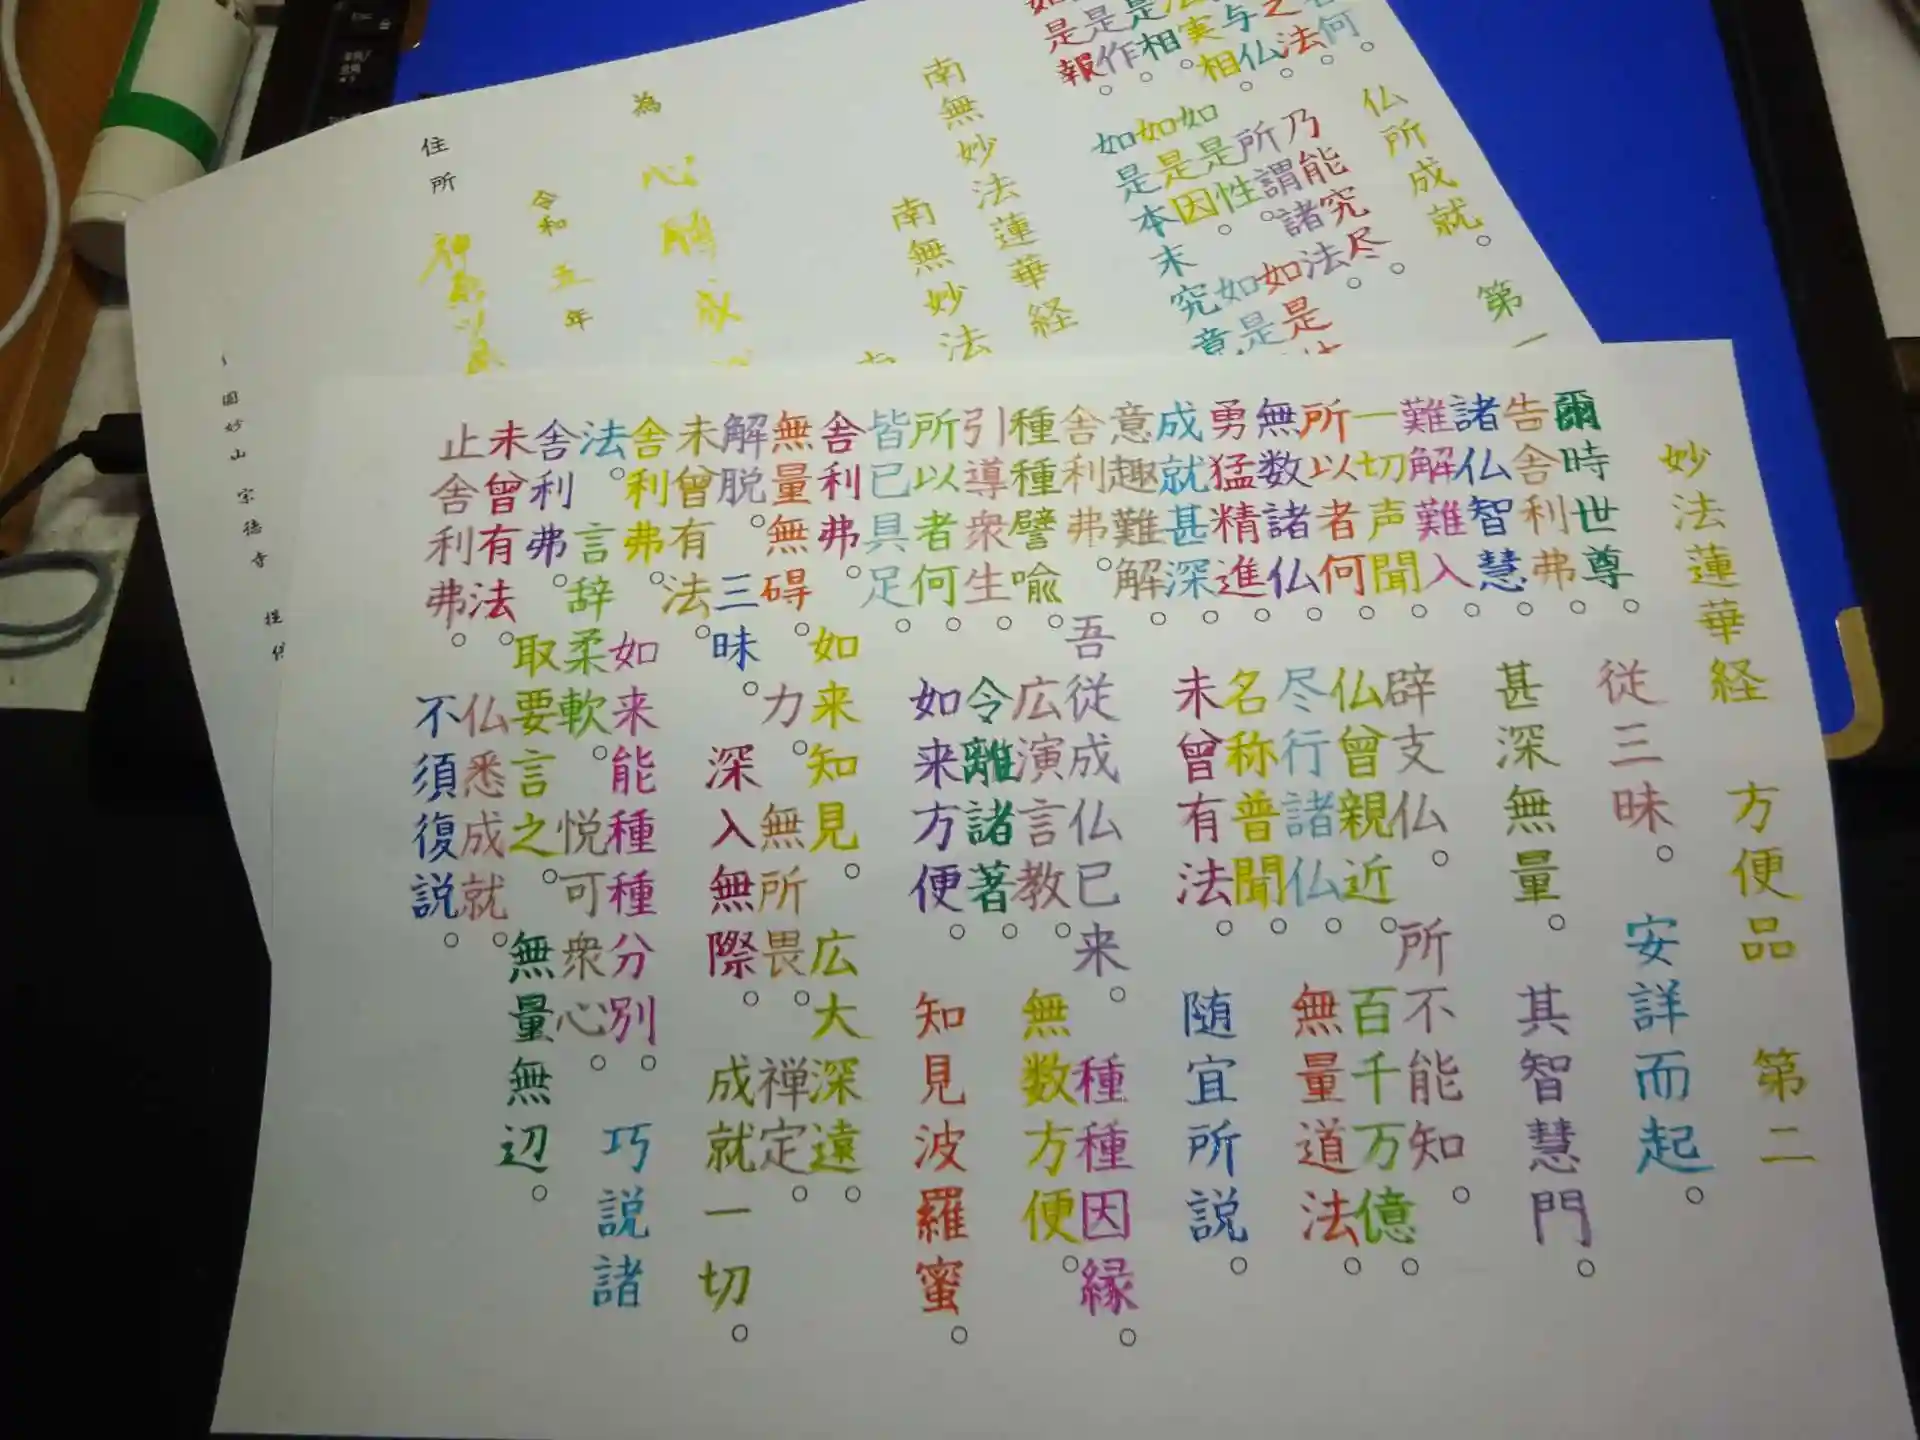 妙法蓮華経　方便品　第二
爾時世尊。従三昧。安詳而起。
告舎利弗。
諸仏智慧。甚深無量。其智慧門。
難解難入。
一切声聞。辟支仏。所不能知。
所以者何。仏曾親近。百千万億。
無数諸仏。尽行諸仏。無量道法。
勇猛精進。名称普聞。
成就甚深。未曾有法。随宜所説。
意趣難解。
舎利弗。吾従成仏已来。種種因縁。
種種譬喩。広演言教。無数方便。
引導衆生。令離諸著。
所以者何。如来方便。知見波羅蜜。
皆已具足。
舎利弗。如来知見。広大深遠。
無量無碍。力。無所畏。禅定。
解脱。三昧。深入無際。成就一切。
未曾有法。
舎利弗。如来能種種分別。巧説諸
法。言辞柔軟。悦可衆心。
舎利弗。取要言之。無量無辺。
未曾有法。仏悉成就。
止舎利弗。不須復説。
何。仏所成就。第一
之法。
与仏。乃能究尽。
実相。所謂諸法
是相。如是性。如是
是作。如是因。如是
如是報。如是本末究竟
南無妙法蓮華経
南無妙法
為　心願成
令和五年
住所
圓妙山　宗徳寺